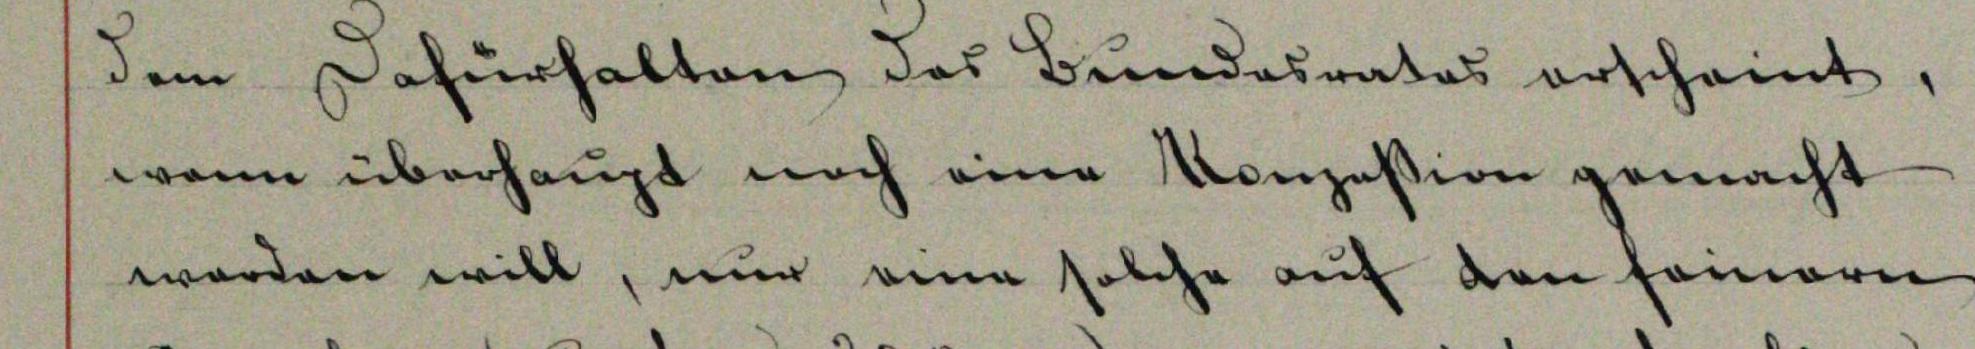 dem Dafürhalten des Bundesrates erscheint,
wenn überhaupt noch eine Konzession gemacht
werden will, nur eine solche auf den feinern